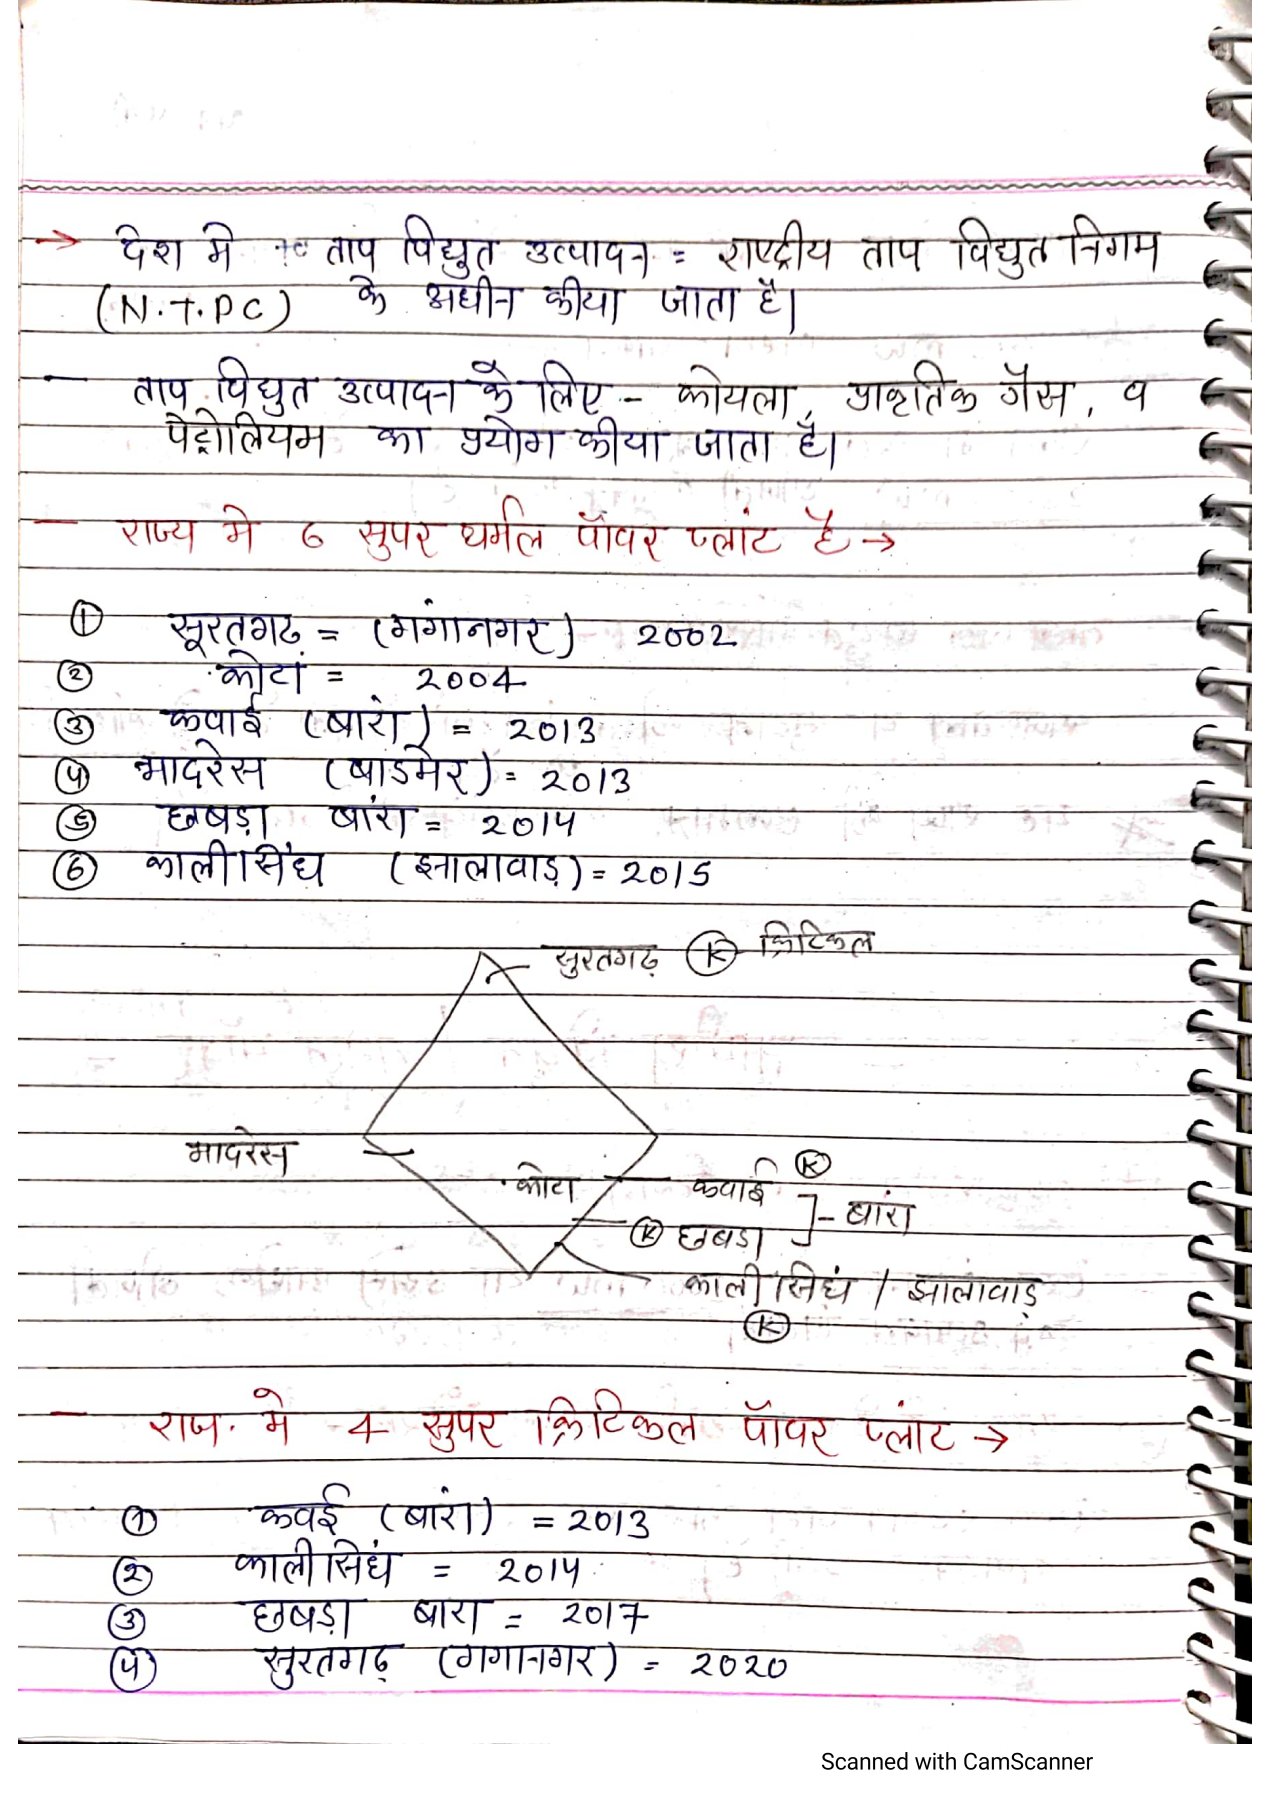 → देश मे ताप विद्युत उत्पादन = राष्ट्रीय ताप विद्युत निगम
(N.T.PC) के अधीन कीया जाता है।
— ताप विद्युत उत्पादन के लिए - कोयला, प्राकृतिक गैस, व
पेट्रोलियम का प्रयोग कीया जाता है।
— राज्य मे 6 सुपर थर्मल पॉवर प्लांट है →
① सूरतगढ = (गंगानगर) 2002
② कोटा = 2004
③ कवाई (बारां) = 2013
④ भादरेस (बाडमेर) = 2013
⑤ छबड़ा बांरा = 2014
⑥ कालीसिंध (झालावाड़) = 2015
सुरतगढ़ Ⓚ क्रिटिकल
भादरेस
कोटा कवाई Ⓚ
Ⓚ छबडा ]- बांरा
काली सिधं / झालावाड़
Ⓚ
— राज. मे 4 सुपर क्रिटिकल पॉवर प्लांट →
① कवई (बांरा) = 2013
② काली सिधं = 2014
③ छबड़ा बारा = 2017
④ सुरतगढ़ (गगानगर) = 2020
Scanned with CamScanner